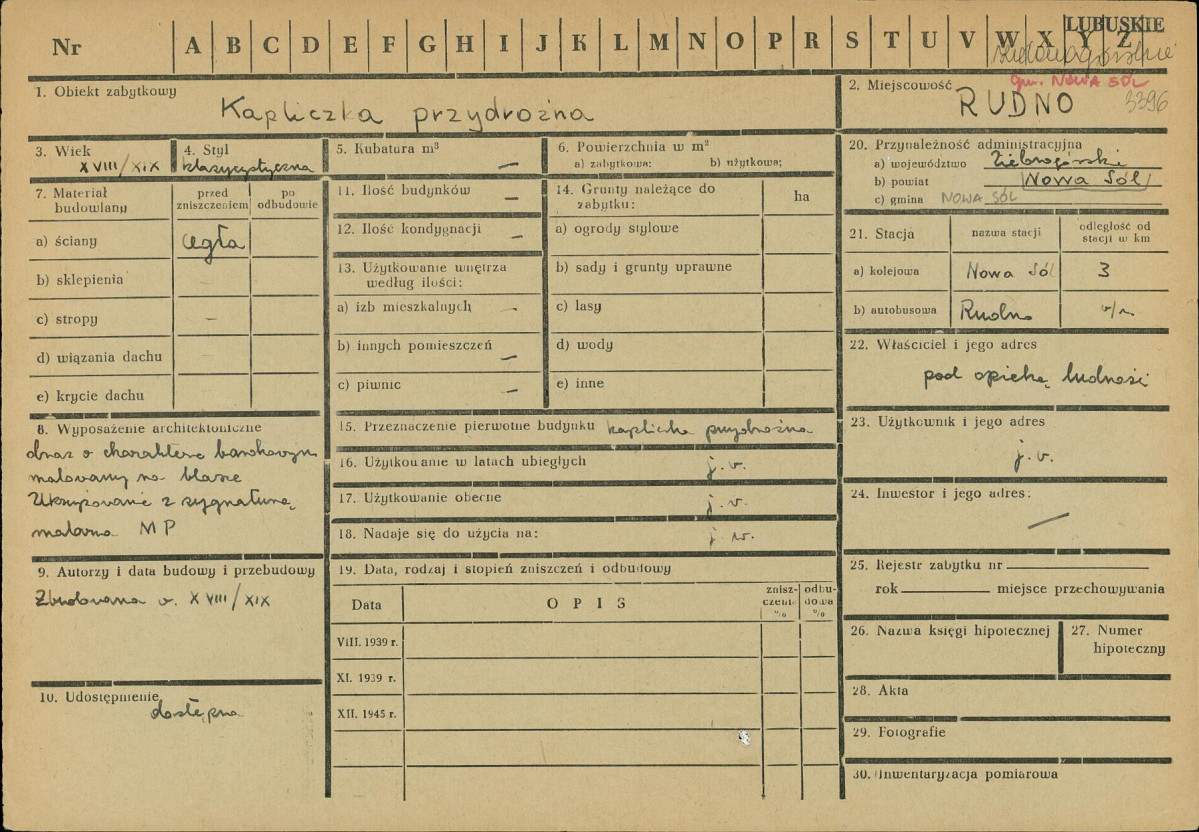 Nr A B C D E F G H I J K L M N O P R S T U V W X Y Z
LUBUSKIE
gm. NOWA SÓL
3396
1. Obiekt zabytkowy
Kapliczka przydrożna
2. Miejscowość
RUDNO
3. Wiek
XVIII/XIX
4. Styl
klasycystyczna
5. Kubatura m³ —
6. Powierzchnia w m²
a) zabytkowa: b) użytkowa;
7. Materiał budowlany
przed zniszczeniem
po odbudowie
a) ściany cegła
b) sklepienia
c) stropy –
d) wiązania dachu
e) krycie dachu
8. Wyposażenie architektoniczne
obraz o charakterze barokowym
malowany na blasze
Ukrzyżowanie z sygnaturą
malarza MP
9. Autorzy i data budowy i przebudowy
Zbudowana w. XVIII/XIX
10. Udostępnienie
dostępna
11. Ilość budynków —
12. Ilość kondygnacji —
13. Użytkowanie wnętrza
według ilości:
a) izb mieszkalnych -
b) innych pomieszczeń —
c) piwnic —
14. Grunty należące do
zabytku:
ha
a) ogrody stylowe
b) sady i grunty uprawne
c) lasy
d) wody
e) inne
15. Przeznaczenie pierwotne budynku kapliczka przydrożna
16. Użytkowanie w latach ubiegłych j. w.
17. Użytkowanie obecne j. w.
18. Nadaje się do użycia na: j. w.
19. Data, rodzaj i stopień zniszczeń i odbudowy
Data
OPIS
zniszczenie %
odbudowa %
VIII. 1939 r.
XI. 1939 r.
XII. 1945 r.
20. Przynależność administracyjna
a) województwo Zielonogórskie
b) powiat Nowa Sól
c) gmina NOWA SÓL
21. Stacja
nazwa stacji
odległość od
stacji w km
a) kolejowa Nowa Sól 3
b) autobusowa Rudno
22. Właściciel i jego adres
pod opieką ludności
23. Użytkownik i jego adres
j. w.
24. Inwestor i jego adres:
—
25. Rejestr zabytku nr
rok miejsce przechowywania
26. Nazwa księgi hipotecznej
27. Numer
hipoteczny
28. Akta
29. Fotografie
30. Inwentaryzacja pomiarowa